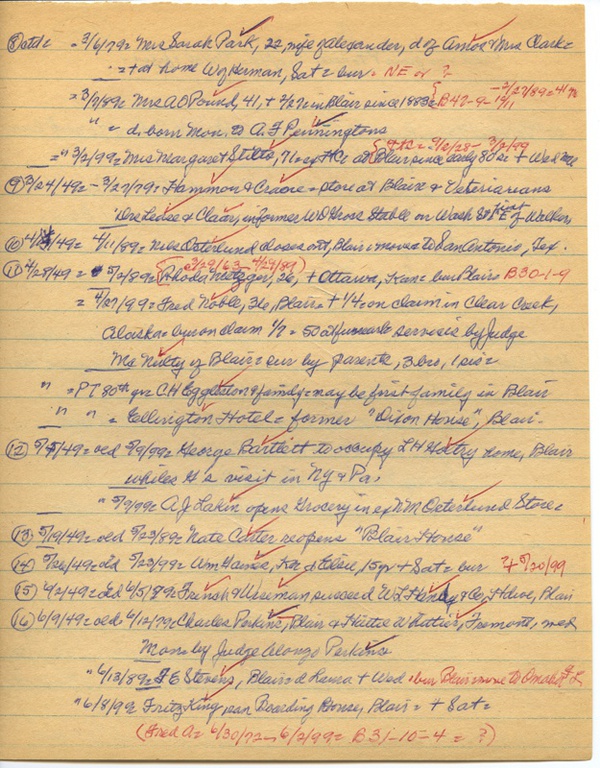 ⑧ ctd = - 3/6/79 = Mrs Sarah Park, 22, wife of Alexander, d of Amos & Mrs Clark =
= + at home W of Herman, Sat = bur = NE or ?
= 3/7/89 = Mrs A O Pound, 41, + 2/27 in Blair since 1883 = { B47-9-1911 - 2/27/89 = 41 yrs
" = d. born Mon, to A. F Penningtons
= " 3/2/99 = Mrs Margaret Stilts, 71 at Blair since early 80's = + Wed { 9/2/28 - 3/2/99
⑨ 3/24/49 = - 3/27/79 = Hammond & Cragie = store at Blair & Veterinarians
in former W D Gross Stable on Wash St first E of Walker
⑩ 4/49 = 4/11/89 = Nels Osterlund closes out, Blair = moves to San Antonio, Tex.
⑪ 4/28/49 = 5/2/89 { 3/29/63 - 4/29/89 } Rhoda Metzger, 26, + Ottawa, Kans = bur Blair = B30-1-9
= 4/27/99 = Fred Noble, 36, Blair = + 1/4 = on claim in Clear Creek,
Alaska = bur on claim 1/7 = 50 at funeral = services by Judge
McNulty of Blair = sur by parents, 3 bro, 1 sis =
" = PT 80th yr C H Eggleston & family = may be first family in Blair
" " = Ellington Hotel = former "Dixon House", Blair -
⑫ 5/5/49 = ctd 5/9/99 = George Bartlett to occupy L H home, Blair
while H's visit in NY & Pa,
" 5/9/99 = A J Lakin opens Grocery in ex N M Osterlund Store =
⑬ 5/19/49 = ctd 5/23/89 = Nate Carter reopens "Blair House"
⑭ 5/26/49 = ctd 5/23/99 = Wm 15 yr + Sat = bur ? + 5/20/99
⑮ 6/2/49 = ctd 6/5/89 = French & Wiseman succeed W L Henley & Co, Hdwe, Blair
⑯ 6/9/49 = ctd 6/12/79 = Charles Perkins, Blair & Hattie Whittier, Fremont, wed
Mon = by Judge Alonzo Perkins
" 6/13/89 = F E Stevens, Blair = d Rama + Wed = bur Blair = move to Omaha
" 6/8/99 = Fritz King, ran Boarding House, Blair = + Sat =
(Fred A = 6/30/72 - 6/2/99 = B31-10-4 = ?)